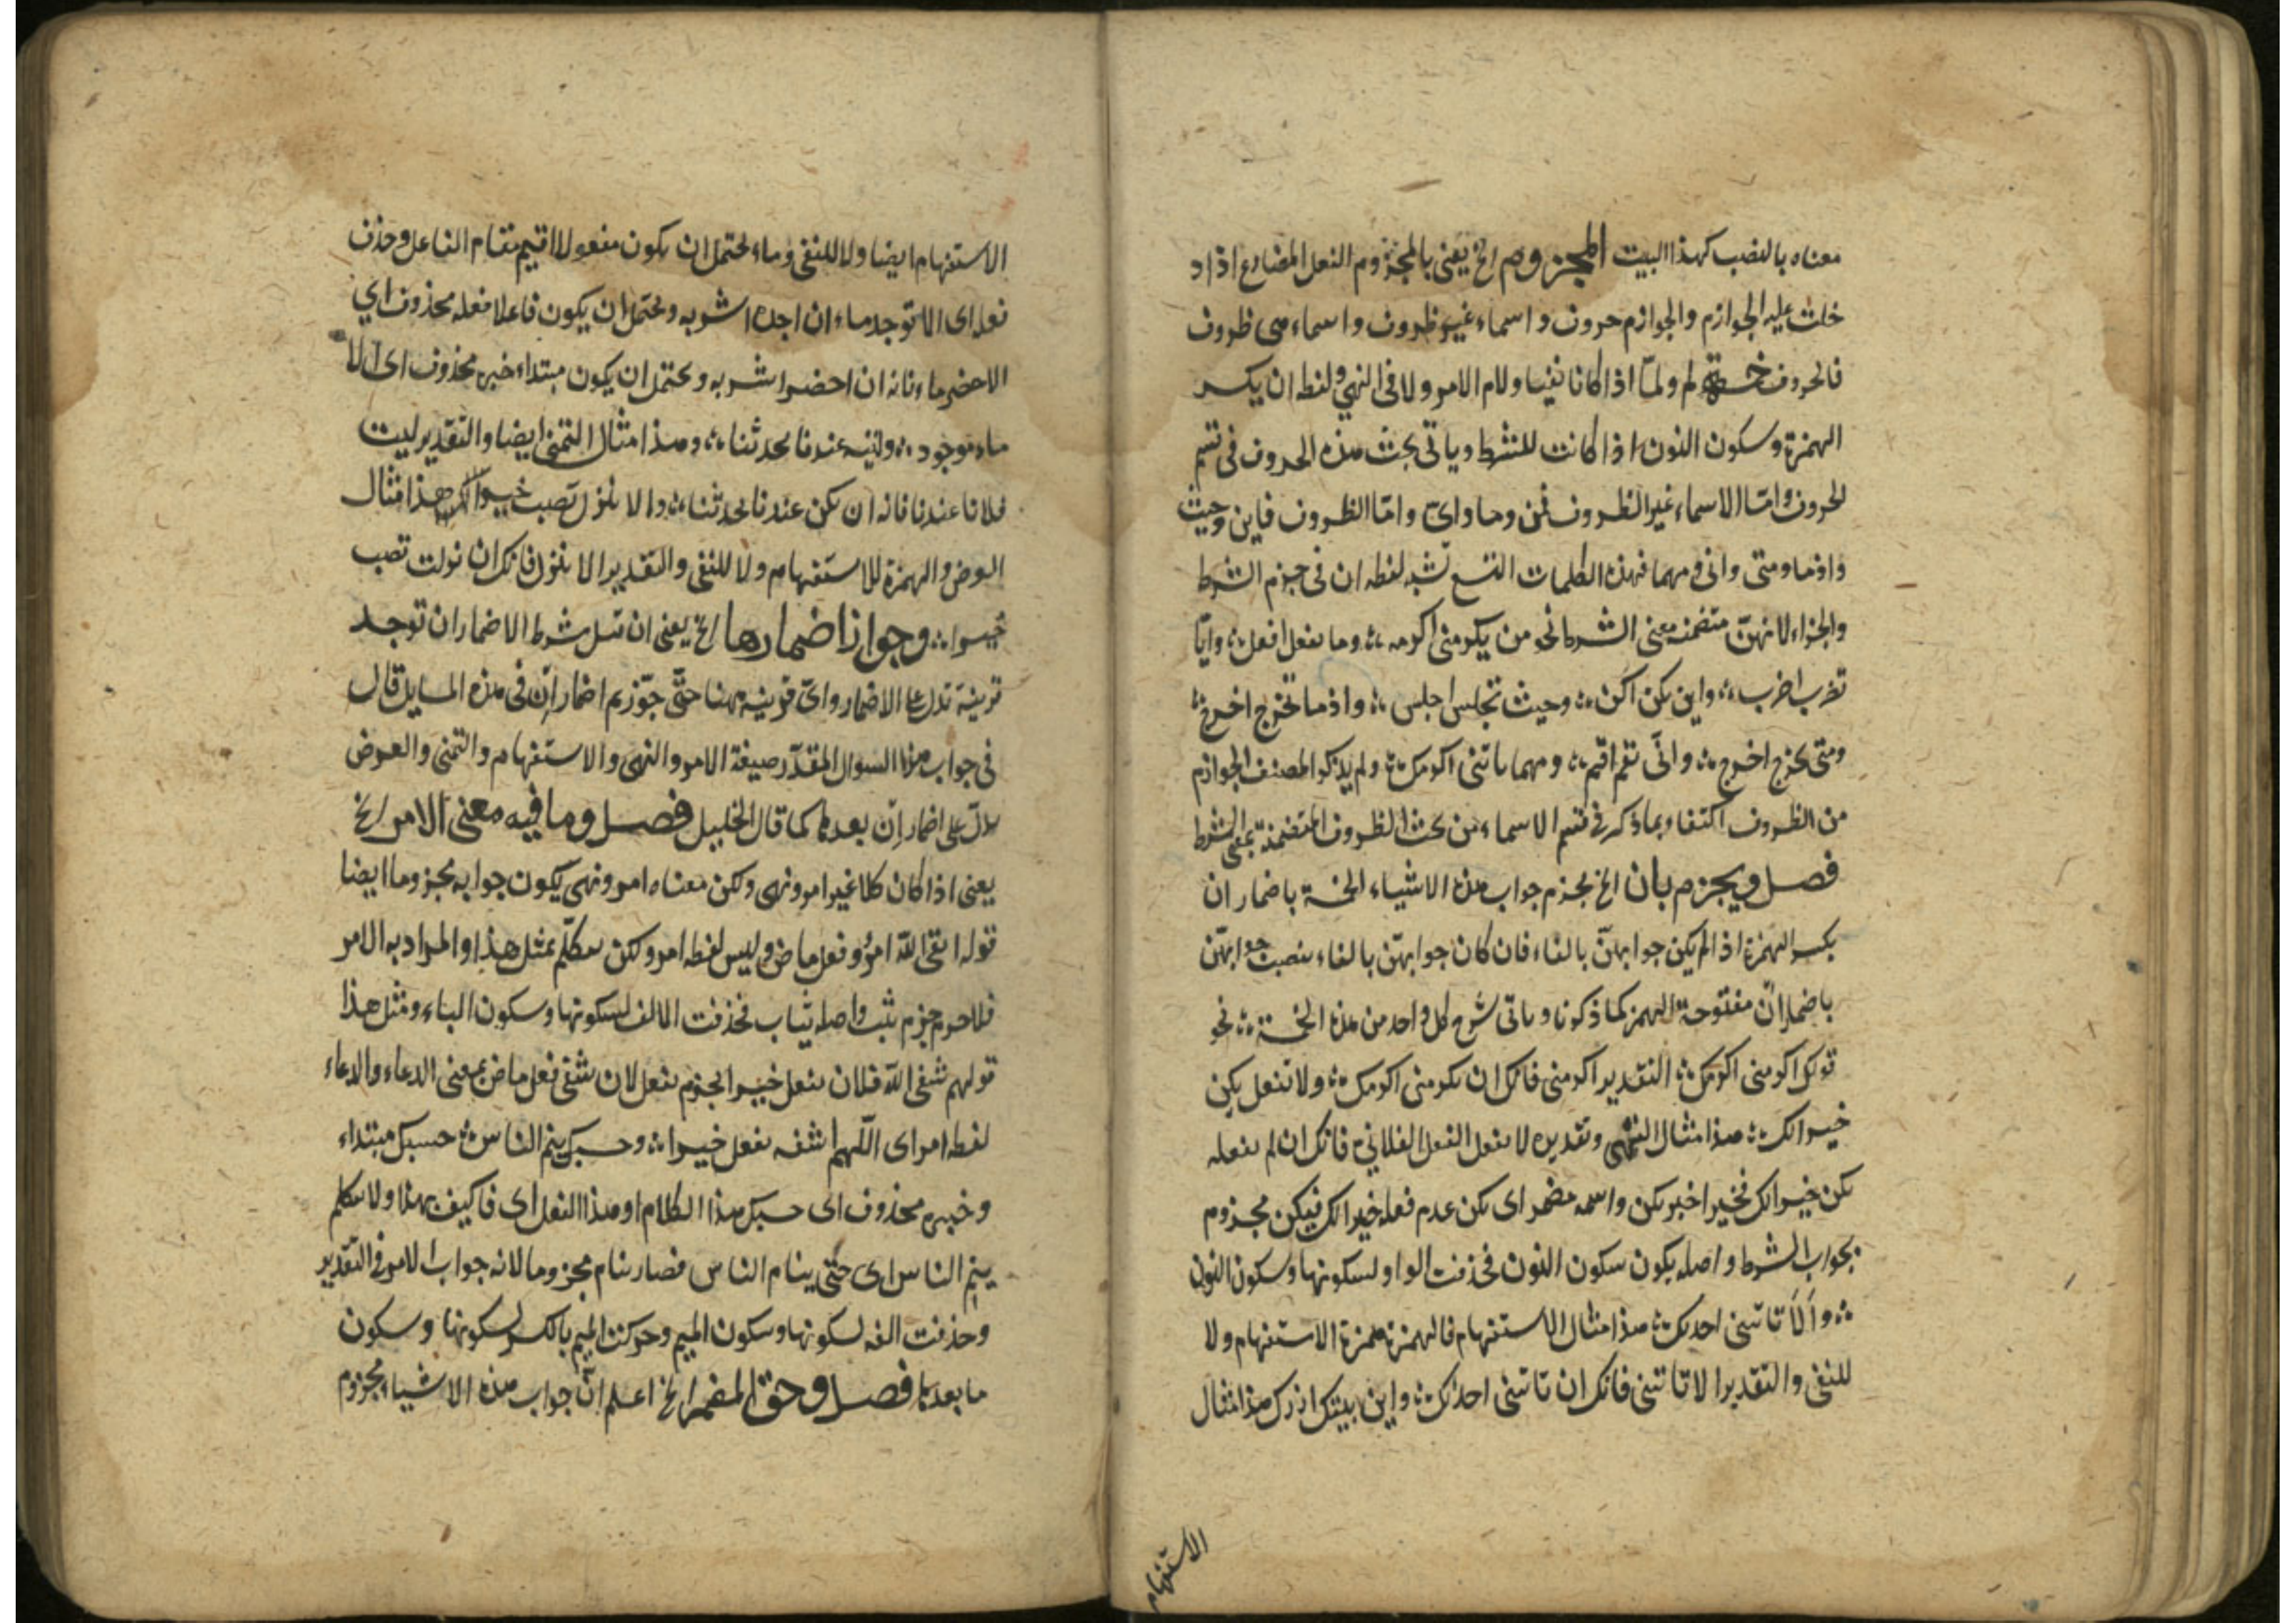 معناه بالنصب كهذا البيت المجزوم الخ يعني بالمجزوم الفعل المضارع اذا د
خلت عليه الجوازم والجوازم حروف واسماء غير ظروف واسماء هي ظروف
فالحروف خمسة لم ولمّا اذا كانا نفيا ولام الامر ولا في النهي ولفظه ان بكسر
الهمزة وسكون النون اذا كانت للشرط وياتي بحث هذه الحروف في قسم
الحروف وامّا الاسماء غير الظروف فمن وما وايّ وامّا الظروف فاين وحيث
واذما ومتى وانى ومهما فهذه الكلمات التسع تشبه لفظه ان في جزم الشرط
والجزاء لانهنّ متضمنة معنى الشرط نحو من يكرمني اكرمه ؞ وما تفعل افعل ؞ وايّا
تضرب اضرب ؞ واين تكن اكن ؞ وحيث تجلس اجلس ؞ واذما تخرج اخرج ؞
ومتى تخرج اخرج ؞ وانّى تقم اقم ؞ ومهما تاتني اكرمك ؞ ولم يذكر المصنف الجوازم
من الظروف اكتفاء بما ذكر في قسم الاسماء من بحث الظروف المتضمنة بمعنى الشرط
فصل ويجزم بان الخ يجزم جواب هذه الاشياء الخمسة باضمار ان
بكسر الهمزة اذا لم يكن جوابهنّ بالفاء فان كان جوابهنّ بالفاء ينصب جوابهنّ
باضمار انّ مفتوحة الهمز كما ذكرنا وياتي شرح كل واحد من هذه الخمسة ؞ نحو
قولك اكرمني اكرمك ؞ التقدير اكرمني فانك ان تكرمني اكرمك ؞ ولا تفعل يكن
خيرا لك ؞ هذا مثال النهي وتقديره لا تفعل الفعل الفلاني فانك ان لم تفعله
يكن خيرا لك فخيرا خبر يكن واسمه مضمر اى يكن عدم فعله خيرا لك فيكن مجزوم
بجواب الشرط واصله يكون سكون النون فحذفت الواو لسكونها وسكون النون
؞ وأَلَا تاتني احدثك ؞ هذا مثال الاستفهام فالهمزة همزة الاستفهام ولا
للنفي والتقدير الا تاتني فانك ان تاتني احدثك ؞ واين بيتك ازرك هذا مثال
الاستفهام
الاستفهام ايضا ولا للنفي وماء يحتمل ان يكون مفعولا اقيم مقام الفاعل وحذف
فعله اى الا توجد ماء ان اجده اشربه ويحتمل ان يكون فاعلا فعله محذوف اي
الا حضر ماء فانه ان احضر اشربه ويحتمل ان يكون مبتداء خبره محذوف اى الا
ماء موجود ؞ وليته عندنا يحدثنا ؞ وهذا مثال التمني ايضا والتقدير ليت
فلانا عندنا فانه ان يكن عندنا يحدثنا ؞ والا تنزل تصب خيرا هذا مثال
العرض والهمزة للاستفهام ولا للنفي والتقدير الا تنزل فانك ان نزلت تصب
خيرا ؞ وجواز اضمارها الخ يعني ان قيل شرط الاضمار ان توجد
قرينة تدل على الاضمار واىّ قرينة ههنا حتّى جوّزتم اضمار ان في هذه المسايل قال
في جواب هذا السوال المقدّر صيغة الامر والنهى والاستفهام والتمنى والعرض
تدلّ على اضمار اِن بعدها كما قال الخليل فصل وما فيه معنى الامر الخ
يعنى اذا كان كلاما غير امر ونهى ولكن معناه امر ونهى يكون جوابه مجزوما ايضا
قوله اتقى اللّه امرؤ وفعل ماض وليس لفظه امر ولكن يتكلّم بمثل هذا والمراد به الامر
فلا جرم جزم يثب واصله يثاب فحذفت الالف لسكونها وسكون الباء ومثل هذا
قولهم شفى اللّه فلان يفعل خيرا يجزم يفعل لان شفى فعل ماض بمعنى الدعاء والدعاء
لفظه امر اى اللّهم اشفه يفعل خيرا ؞ وحسبك ينم الناس ؞ حسبك مبتداء
وخبره محذوف اى حسبك هذا الكلام او هذا الفعل اى فاكيف بهذا ولا تتكلم
ينم الناس اى حتّى ينام الناس فصار ينام مجزوما لانه جواب الامر في التقدير
وحذفت الفه لسكونها وسكون الميم وحركت الميم بالكسر لسكونها وسكون
ما بعدها فصل وحق المضمر الخ اعلم انّ جواب هذه الاشياء مجزوم